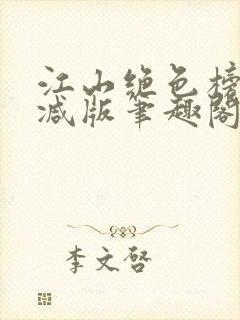 江山绝色榜
减版笔趣阁
李文启